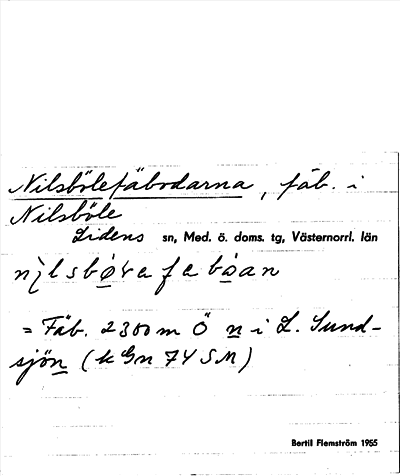 Nilsbölefäbodarna, fäb. i
Nilsböle
Lidens sn, Med. ö. doms. tg, Västernorrl. län
= Fäb. 2300 m Ö n i L. Sund-
sjön (k Gn 74 SM)
Bertil Flemström 1955